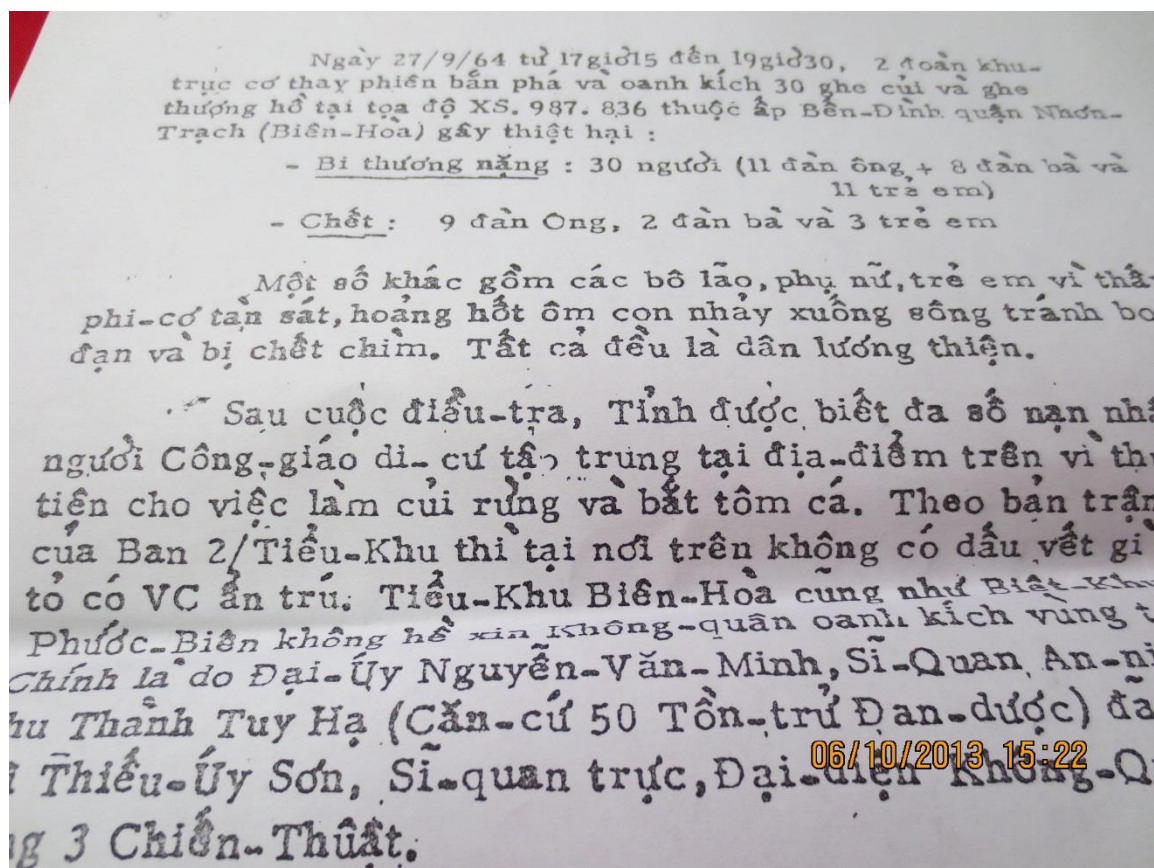 Ngày 27/9/64 từ 17giờ15 đến 19giờ30, 2 đoàn khu-
trục cơ thay phiên bắn phá và oanh kích 30 ghe củi và ghe
thương hồ tại tọa độ XS. 987. 836 thuộc ấp Bến-Đình quận Nhơn-
Trạch (Biên-Hoà) gây thiệt hại :
- Bi thương nặng : 30 người (11 đàn ông + 8 đàn bà và
11 trẻ em)
- Chết : 9 đàn Ông, 2 đàn bà và 3 trẻ em
Một số khác gồm các bô lão, phụ nữ, trẻ em vì
phi-cơ tàn sát, hoảng hốt ôm con nhảy xuống sông tránh
đạn và bị chết chìm. Tất cả đều là dân lương thiện.
Sau cuộc điều-tra, Tỉnh được biết đa số nạn
người Công-giáo di-cư tập trung tại địa-điểm trên vì
tiện cho việc làm củi rừng và bắt tôm cá. Theo bản
của Ban 2/Tiểu-Khu thì tại nơi trên không có dấu vết gì
tỏ có VC ẩn trú. Tiểu-Khu Biên-Hoà cũng như Biệt-Khu
Phước-Biên không hề xin Không-quân oanh kích vùng
Chính là do Đại-Úy Nguyễn-Văn-Minh, Sĩ-Quan An-
Thành Tuy Hạ (Căn-cứ 50 Tồn-trữ Đạn-dược) đã
Thiếu-Úy Sơn, Sĩ-quan trực, Đại-diện Không-
3 Chiến-Thuật.
06/10/2013 15:22